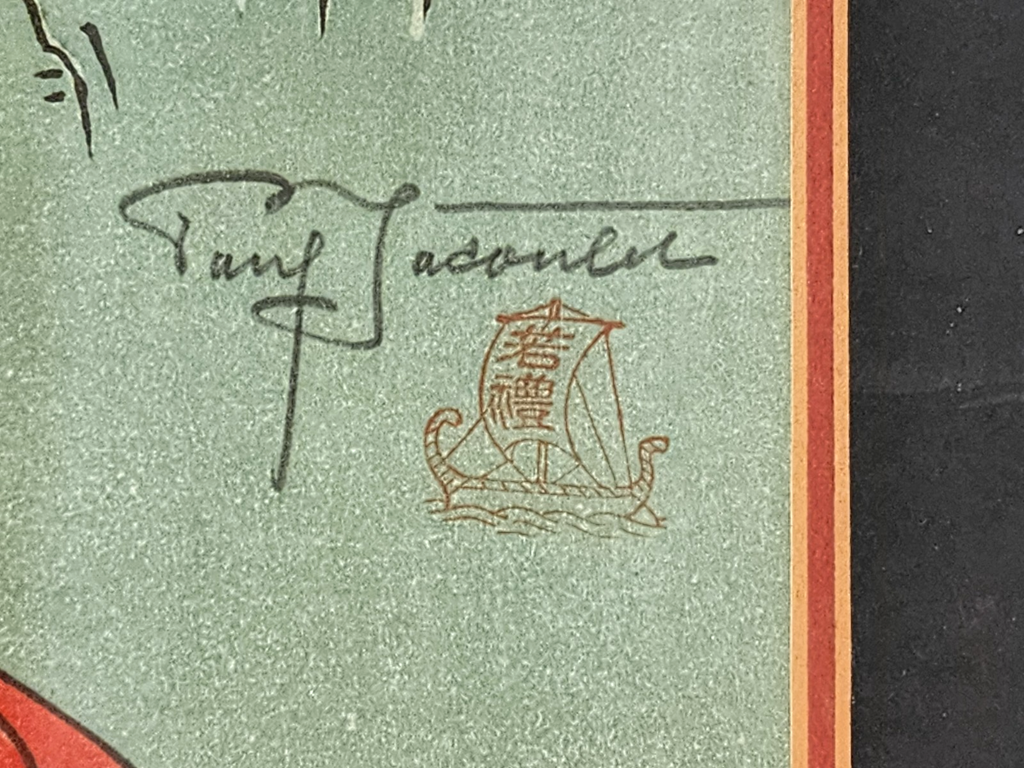 Paul Jacoulet
若
禮